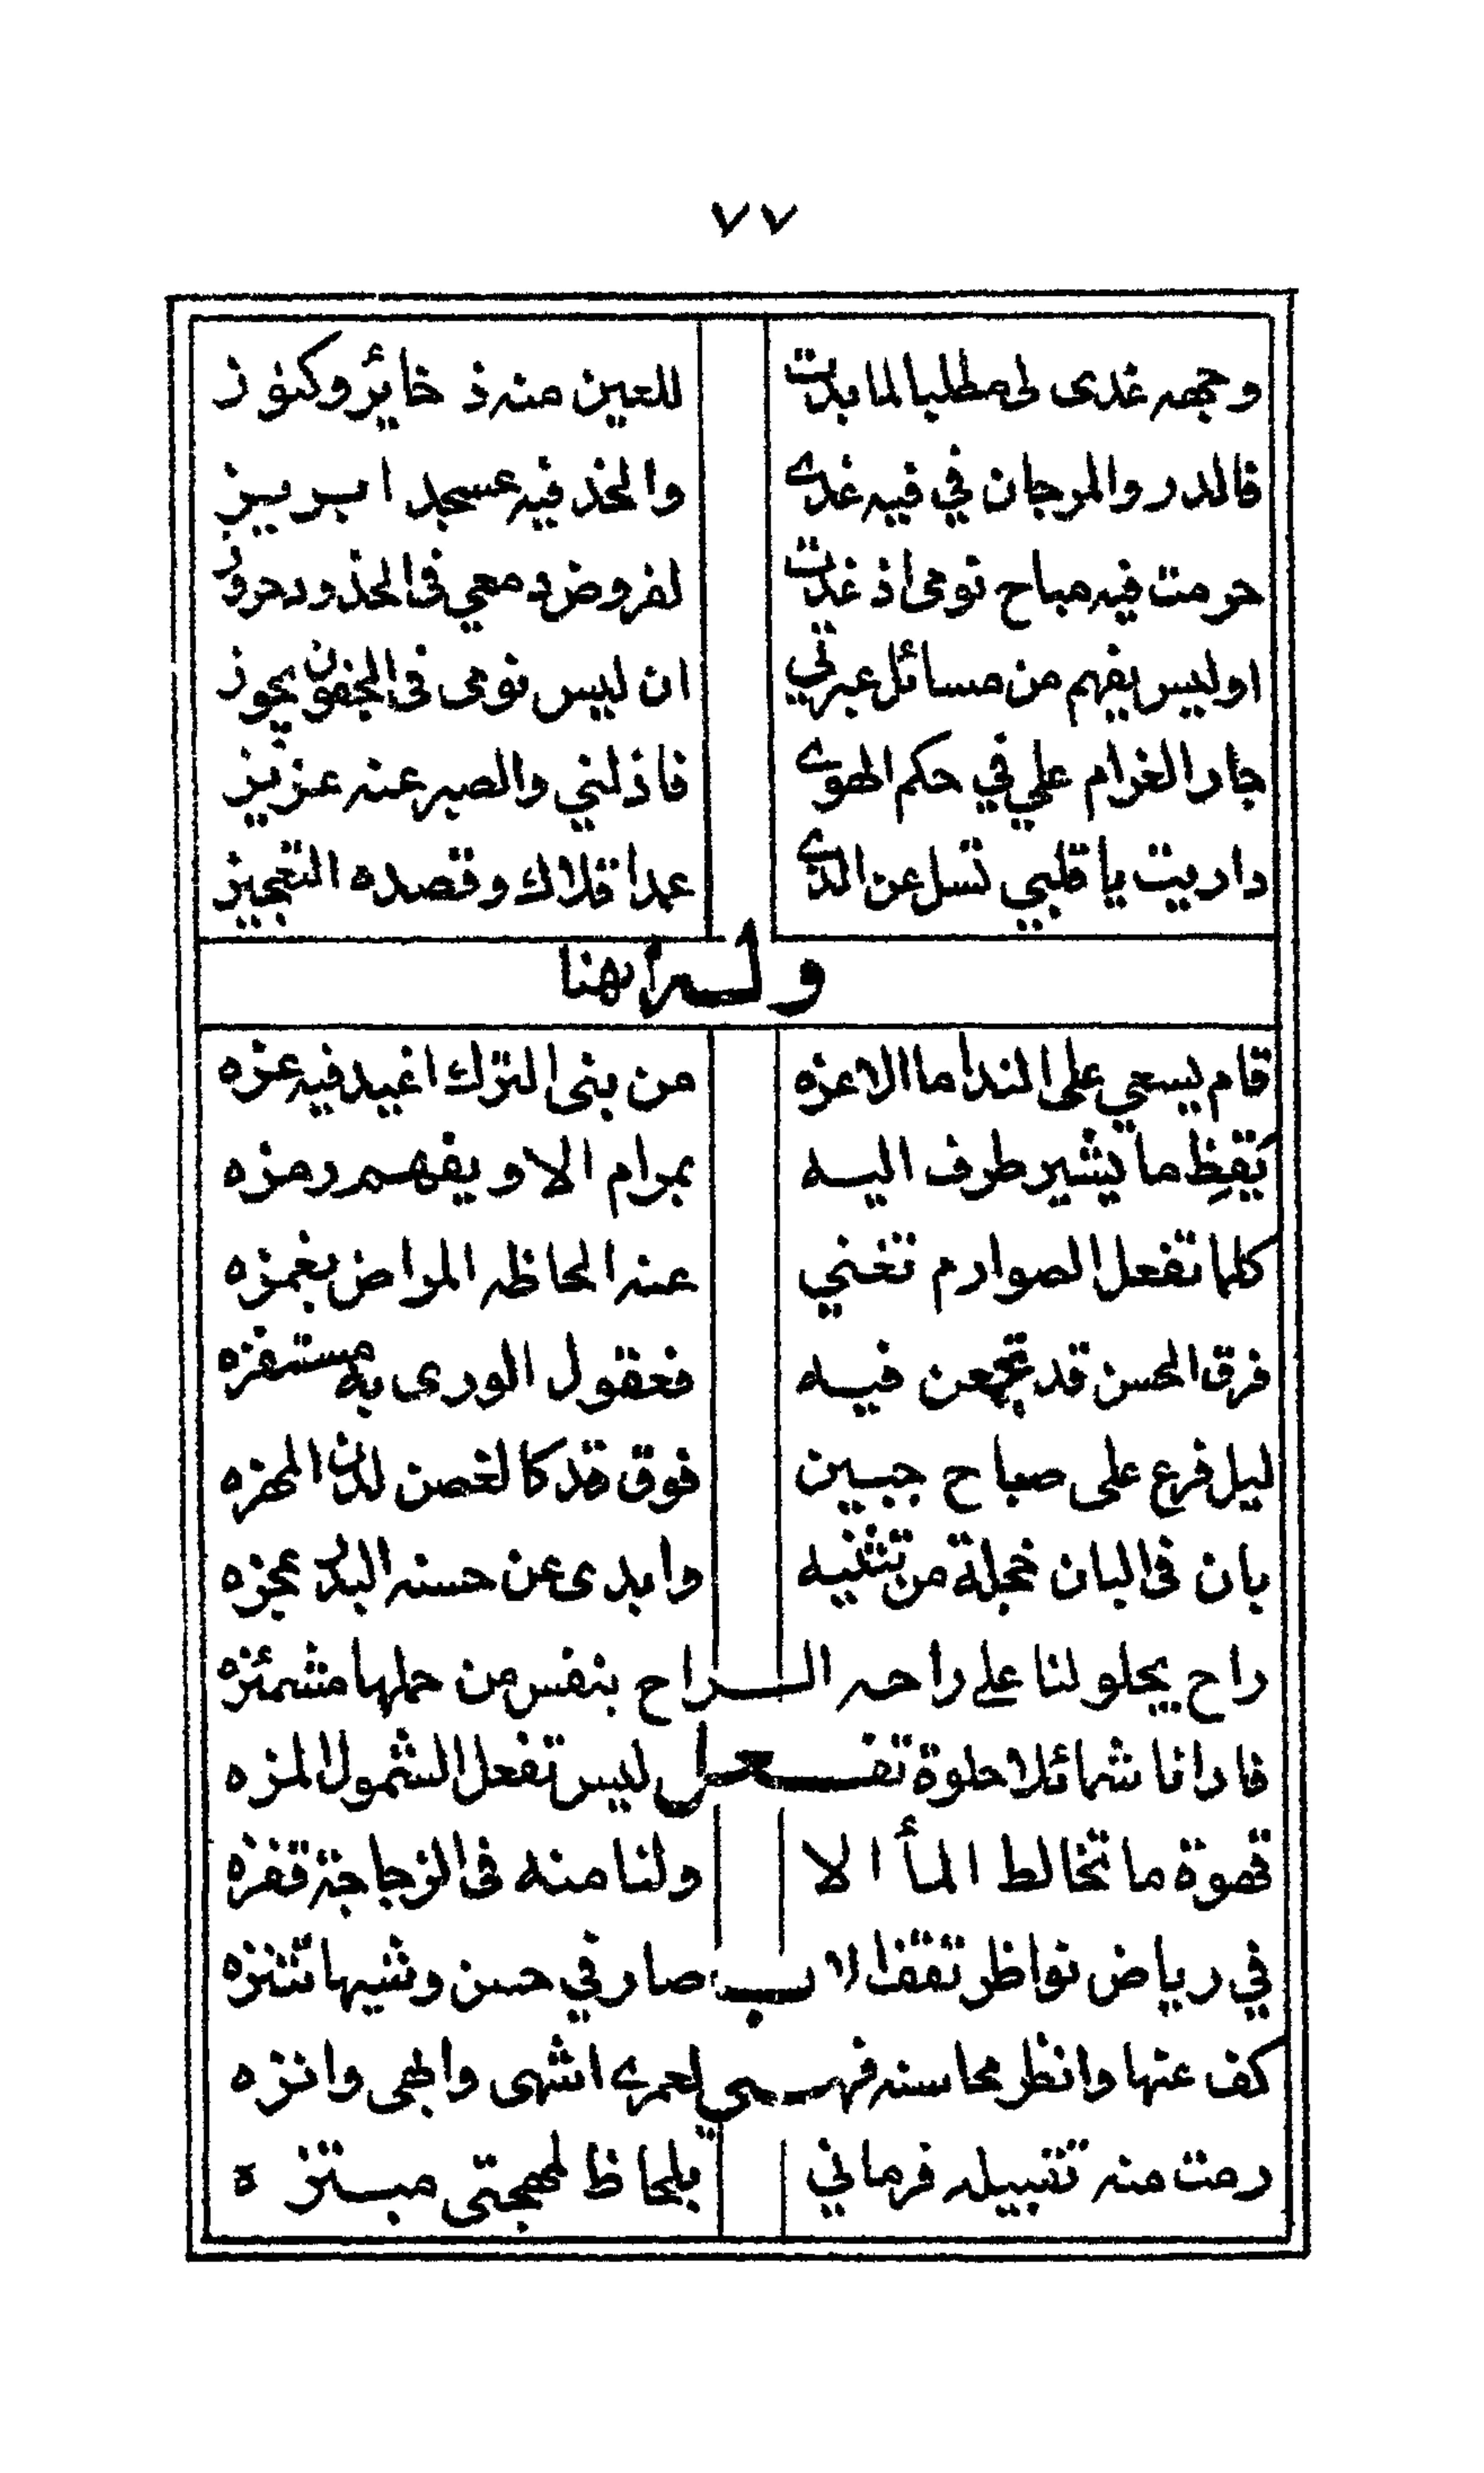 ٧٧
وجهه غدى لى مطلبا لما بدت للعين منه ذخائر وكنوز
فالدر والمرجان في فيه غدى والخد فيه عسجد ابريز
حرمت فيه مباح نومى اذ غدت لفروض دمعي فى الخدود حروز
اوليس يفهم من مسائل عبرتي ان ليس نومى فى الجفون يجوز
جار الغرام علي في حكم الهوى فاذلني والصبر عنه عزيز
داريت يا قلبي تسل عن الذى عمدا قلاك وقصده التعجيز
وله ايضا
قام يسعي على النداما الاعزه من بنى الترك اغيد فيه عزه
يَقِظِ ما يشير طرف اليه بمرام الا ويفهم رمزه
كلما تفعل الصوارم تغني عنه الحاظه المراض بغمزه
فرق الحسن قد تجمعن فيه فعقول الورى به مستفزه
ليل فرع على صباح جبين فوق قد كالغصن لدن المهزه
بان فى البان خجلة من تثنيه وابدى عن حسنه البدر عجزه
راح يجلو لنا على راحه الراح بنفس من حملها مشمئزه
فادانا شمائلا حلوة تفعل ليس تفعل الشمول المزه
قهوة ما تخالط المأ الا ولنا منه فى الزجاجة قفزه
في رياض نواظر تقف الالباب صار في حسن وشيها تتنزه
كف عنها وانظر محاسنه فهي لعمرى اشهى وابهى وانزه
رمت منه تقبيله فرماني بلحاظ لمهجتى مبتزه